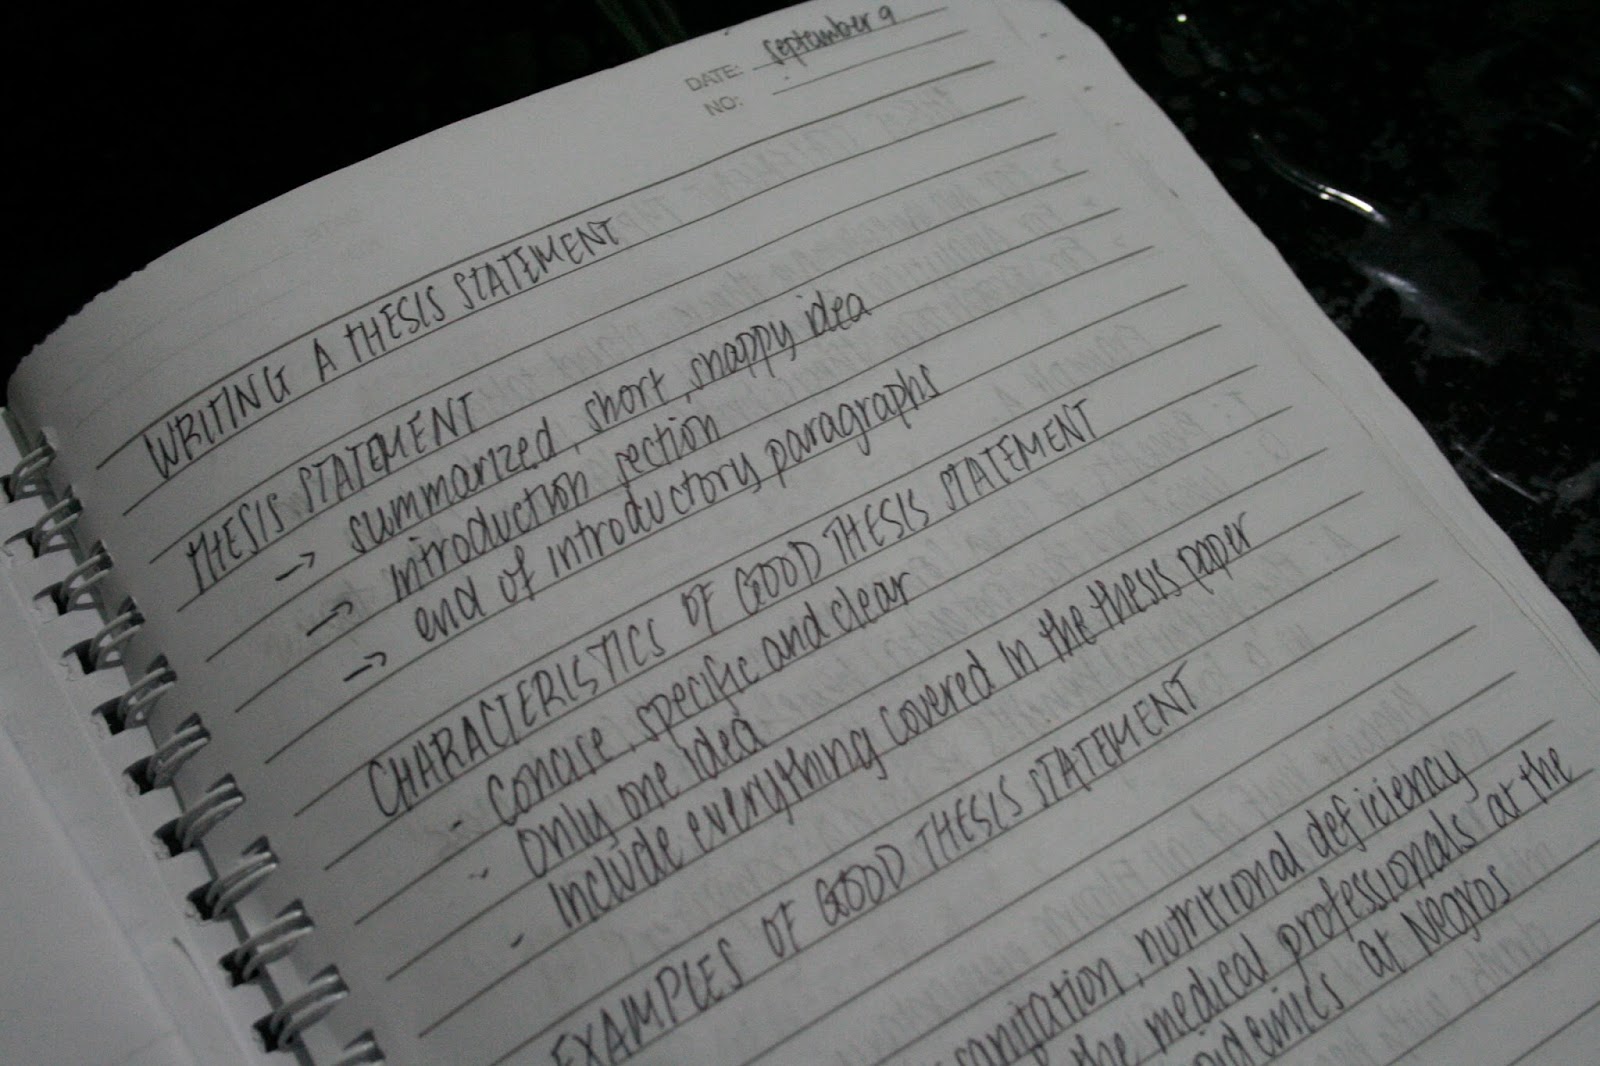 DATE: September 9
NO:
WRITING A THESIS STATEMENT
THESIS STATEMENT
→ summarized, short, snappy idea
→ introduction section
→ end of introductory paragraphs
CHARACTERISTICS OF GOOD THESIS STATEMENT
- concise, specific and clear
- only one idea
- include everything covered in the thesis paper
EXAMPLES OF GOOD THESIS STATEMENT
sanitation, nutritional deficiency
the medical professionals at the
at Negros